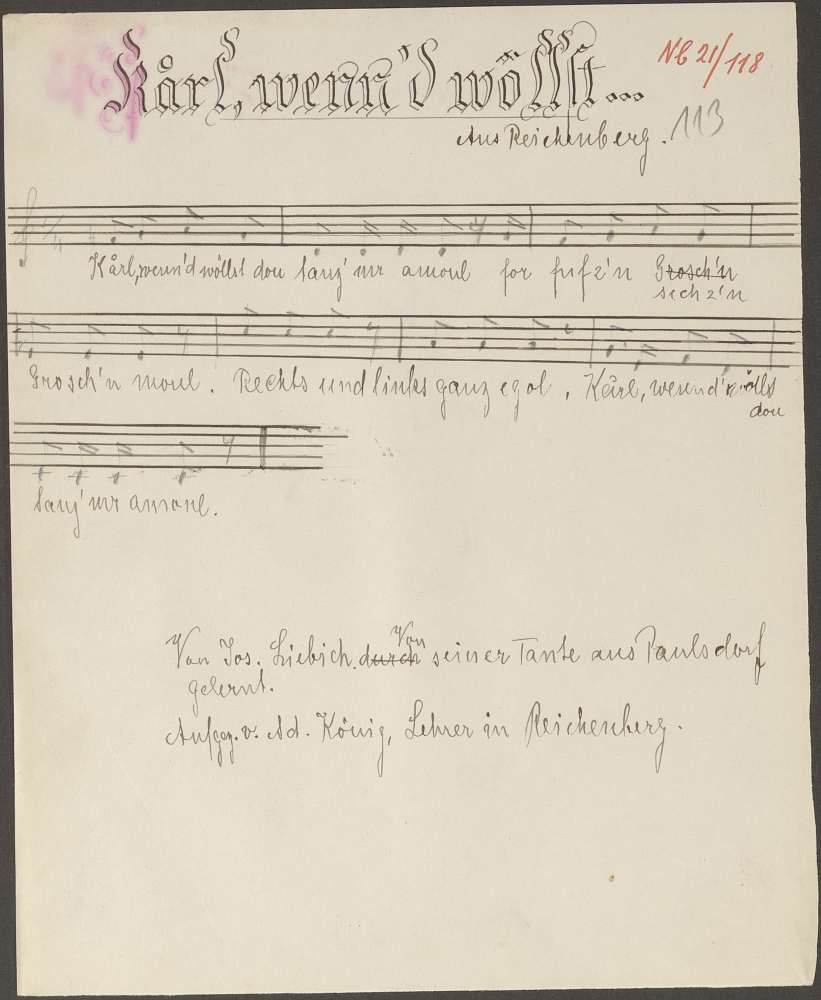 Kårl, wenn'd wöllst...
Nb 21/118
Aus Reichenberg.
113
Kårl, wenn'd wöllst dou tanz' mr amoul for fufz'n Grosch'n
sechz'n
Grosch'n moul. Rechts und links ganz egol, Kårl, wennd'wöllst
dou
tanz' mr amoul.
Von
Von Jos. Liebich durch seiner Tante aus Paulsdorf
gelernt.
Aufgez. v. Ad. König, Lehrer in Reichenberg.